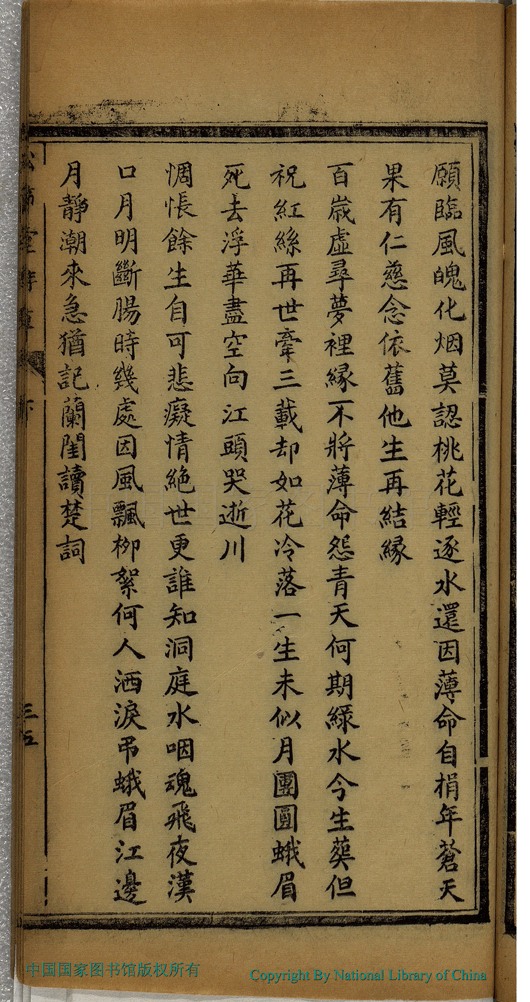 願臨風魄化烟莫認桃花輕逐水還因薄命自捐年蒼天
果有仁慈念依舊他生再結緣
百歲虛尋夢裡緣不將薄命怨青天何期綠水今生葬但
祝紅絲再世牽三載却如花冷落一生未似月團圓蛾眉
死去浮華盡空向江頭哭逝川
惆悵餘生自可悲癡情絕世更誰知洞庭水咽魂飛夜漢
口月明斷腸時幾處因風飄柳絮何人洒淚弔蛾眉江邊
月靜潮來急猶記蘭閨讀楚詞
三五
中国国家图书馆版权所有
Copyright By National Library of China